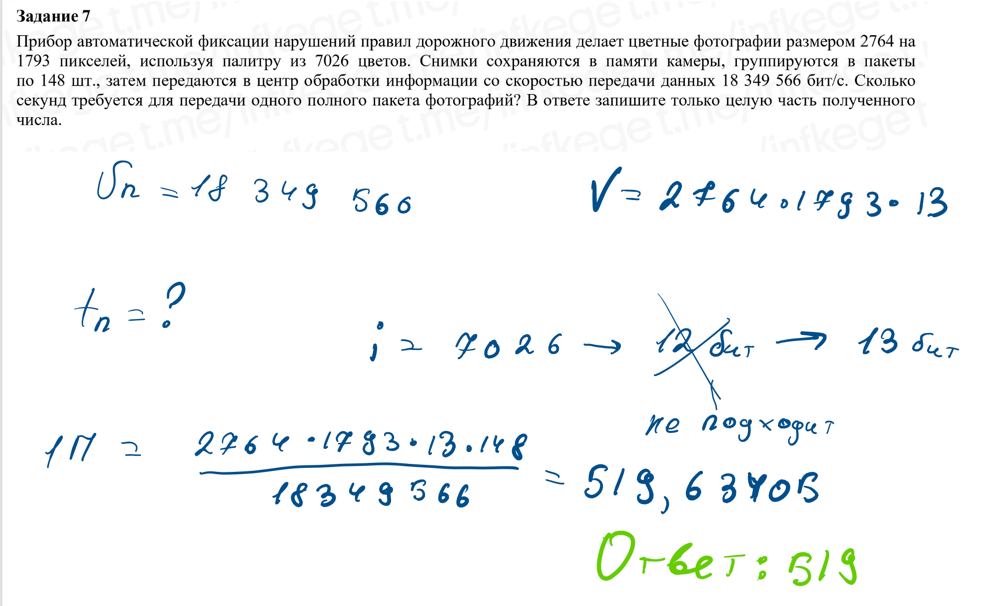 Задание 7
Прибор автоматической фиксации нарушений правил дорожного движения делает цветные фотографии размером 2764 на
1793 пикселей, используя палитру из 7026 цветов. Снимки сохраняются в памяти камеры, группируются в пакеты
по 148 шт., затем передаются в центр обработки информации со скоростью передачи данных 18 349 566 бит/с. Сколько
секунд требуется для передачи одного полного пакета фотографий? В ответе запишите только целую часть полученного
числа.
Uп = 18 349 566
V = 2764·1793·13
tп = ?
i = 7026 → 12 бит → 13 бит
не подходит
1П = 2764·1793·13·148
18349566
= 519,63405
Ответ: 519